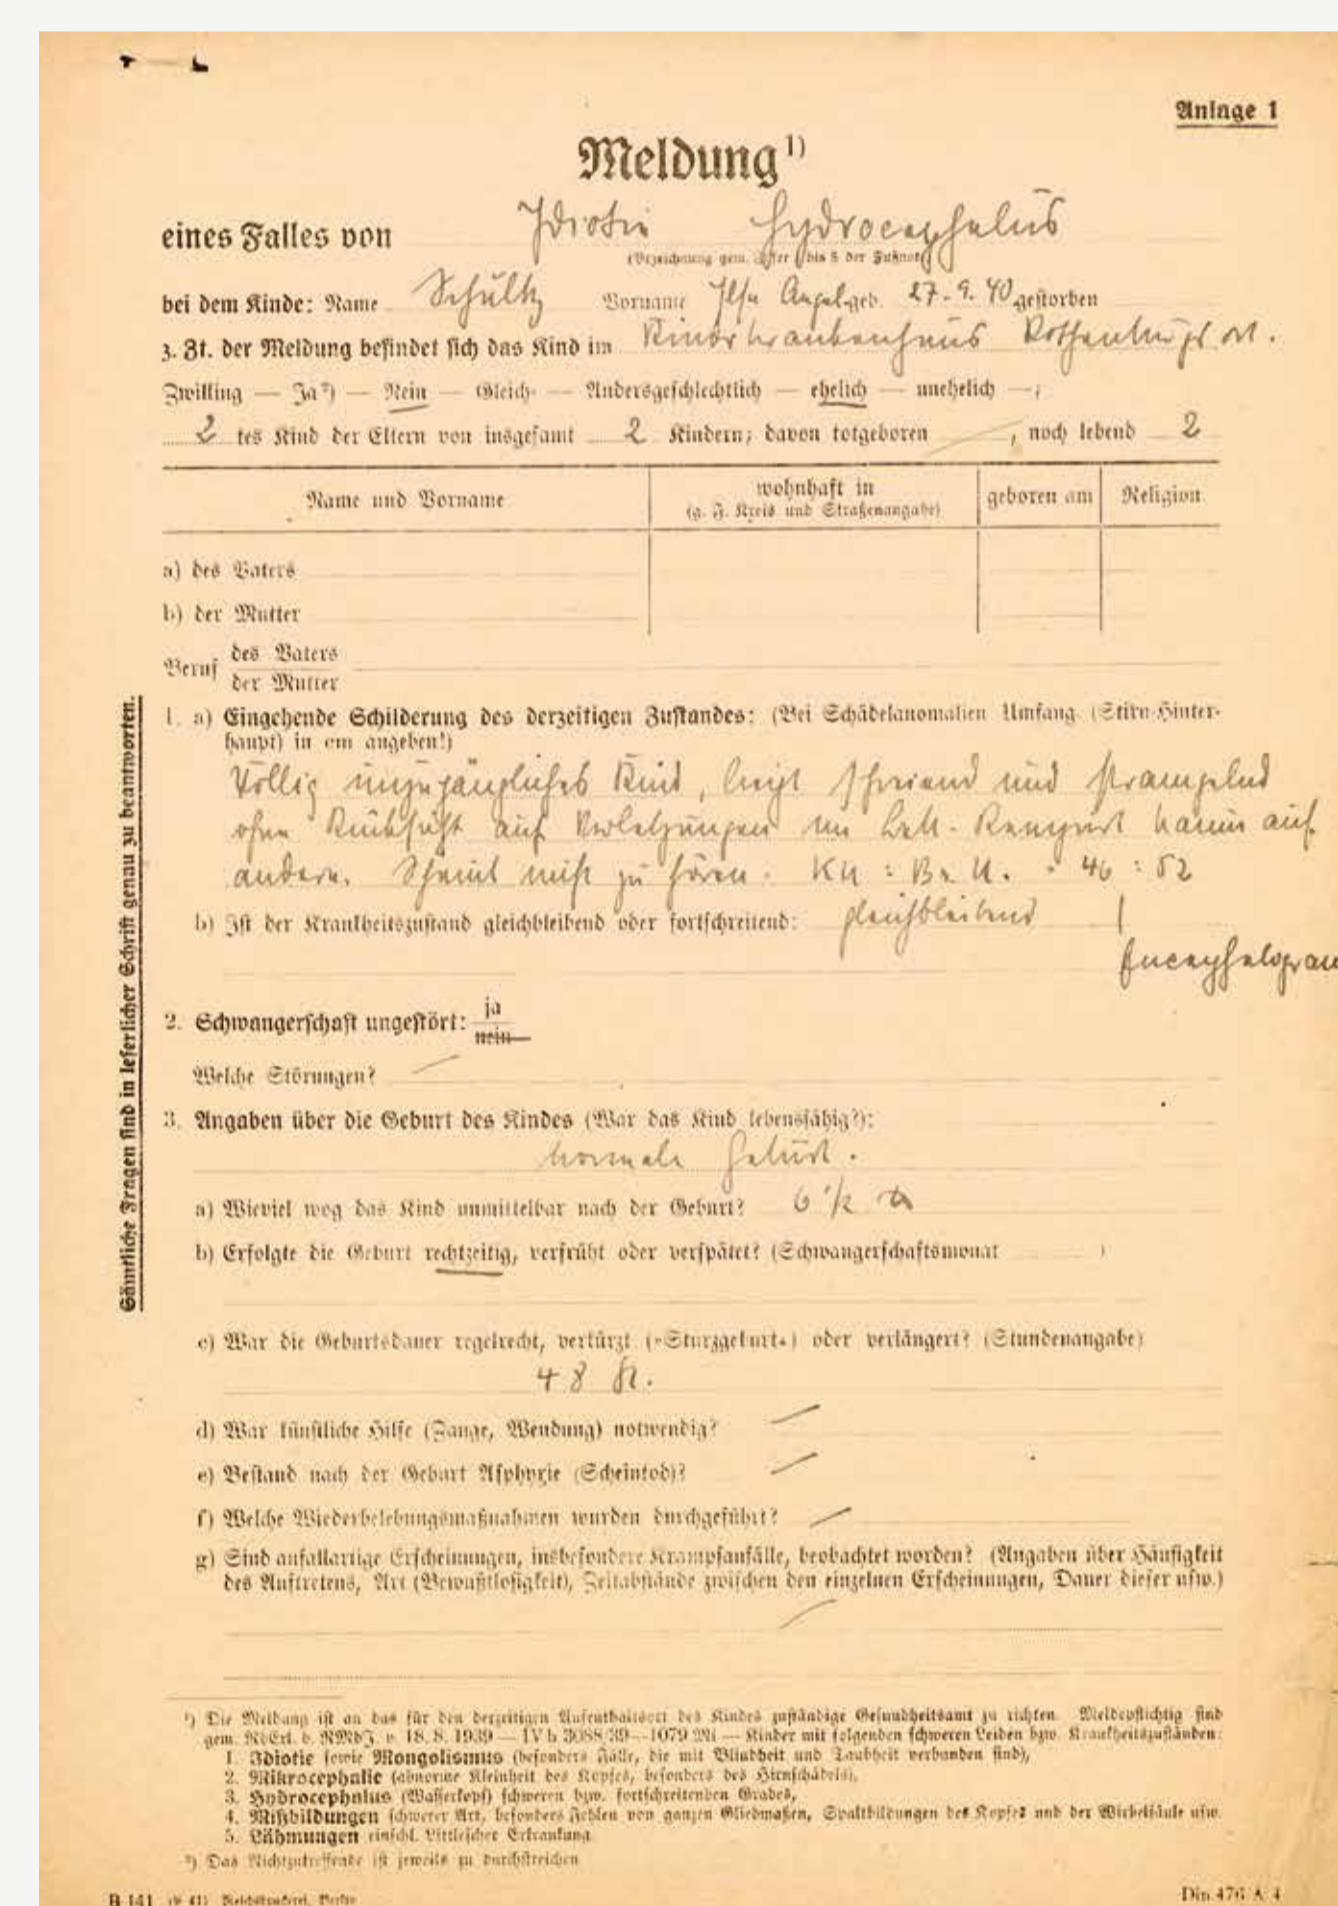 Anlage 1
Meldung¹)
eines Falles von Idiotie Hydrocephalus
(Bezeichnung gem. Ziffer 1 bis 5 der Fußnote)
bei dem Kinde: Name Schultz Vorname Ilse Angel. geb. 27.9.40 gestorben
z. Zt. der Meldung befindet sich das Kind im Kinderkrankenhaus Rothenburgsort.
Zwilling — Ja²) — Nein — Gleich- — Andersgeschlechtlich — ehelich — unehelich —;
2 tes Kind der Eltern von insgesamt 2 Kindern; davon totgeboren , noch lebend 2
Name und Vorname wohnhaft in geboren am Religion
(g. F. Kreis und Straßenangabe)
a) des Vaters
b) der Mutter
Beruf des Vaters
der Mutter
1. a) Eingehende Schilderung des derzeitigen Zustandes: (Bei Schädelanomalien Umfang (Stirn-Hinter-
haupt) in cm angeben!)
Völlig unzugängliches Kind, liegt schreiend und strampelnd
ohne Rücksicht auf Verletzungen im Bett. Reagiert kaum auf
andere. Scheint nicht zu hören. KU : Br. U. = 46 : 52
b) Ist der Krankheitszustand gleichbleibend oder fortschreitend: gleichbleibend
2. Schwangerschaft ungestört: ja
nein
Welche Störungen?
3. Angaben über die Geburt des Kindes (War das Kind lebensfähig?):
normale Geburt.
a) Wieviel wog das Kind unmittelbar nach der Geburt? 6 ½ ℔
b) Erfolgte die Geburt rechtzeitig, verfrüht oder verspätet? (Schwangerschaftsmonat )
c) War die Geburtsdauer regelrecht, verkürzt (»Sturzgeburt«) oder verlängert? (Stundenangabe)
48 St.
d) War künstliche Hilfe (Zange, Wendung) notwendig?
e) Bestand nach der Geburt Asphyxie (Scheintod)?
f) Welche Wiederbelebungsmaßnahmen wurden durchgeführt?
g) Sind anfallartige Erscheinungen, insbesondere Krampfanfälle, beobachtet worden? (Angaben über Häufigkeit
des Auftretens, Art (Bewußtlosigkeit), Zeitabstände zwischen den einzelnen Erscheinungen, Dauer dieser usw.)
¹) Die Meldung ist an das für den derzeitigen Aufenthaltsort des Kindes zuständige Gesundheitsamt zu richten. Meldepflichtig sind
gem. RdErl. d. RMdJ. v. 18. 8. 1939 — IV b 3088/39—1079 Mi — Kinder mit folgenden schweren Leiden bzw. Krankheitszuständen:
1. Idiotie sowie Mongolismus (besonders Fälle, die mit Blindheit und Taubheit verbunden sind),
2. Mikrocephalie (abnorme Kleinheit des Kopfes, besonders des Hirnschädels),
3. Hydrocephalus (Wasserkopf) schweren bzw. fortschreitenden Grades,
4. Mißbildungen schwerer Art, besonders Fehlen von ganzen Gliedmaßen, Spaltbildungen des Kopfes und der Wirbelsäule usw.
5. Lähmungen einschl. Littlescher Erkrankung
²) Das Nichtzutreffende ist jeweils zu durchstreichen
B 141 Reichsdruckerei, Berlin
Din 476 A 4
Sämtliche Fragen sind in leserlicher Schrift genau zu beantworten.